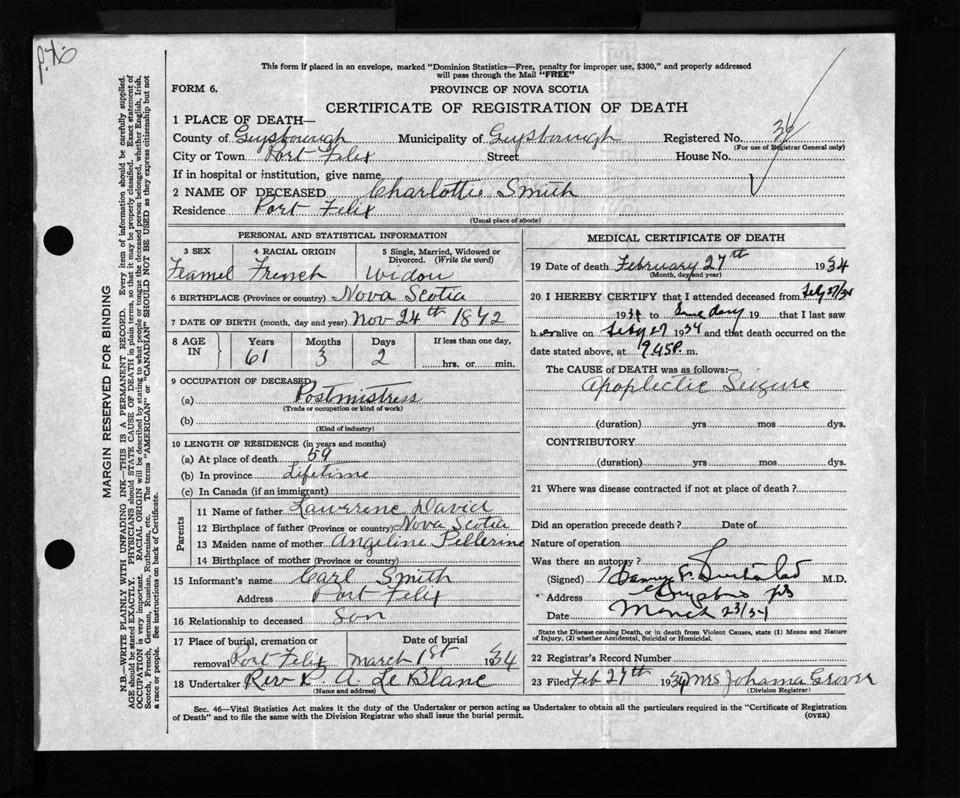 This form if placed in an envelope, marked "Dominion Statistics—Free, penalty for improper use, $300," and properly addressed
will pass through the Mail "FREE"
FORM 6. PROVINCE OF NOVA SCOTIA
CERTIFICATE OF REGISTRATION OF DEATH
1 PLACE OF DEATH—
County of Guysborough Municipality of Guysborough Registered No. 36
(For use of Registrar General only)
City or Town Port Felix Street House No.
If in hospital or institution, give name
2 NAME OF DECEASED Charlottie Smith
Residence Port Felix
(Usual place of abode)
PERSONAL AND STATISTICAL INFORMATION
3 SEX 4 RACIAL ORIGIN 5 Single, Married, Widowed or Divorced. (Write the word)
Feamel French Widow
6 BIRTHPLACE (Province or country) Nova Scotia
7 DATE OF BIRTH (month, day and year) Nov 24th 1872
8 AGE IN Years Months Days If less than one day,
61 3 2 hrs. or min.
9 OCCUPATION OF DECEASED
(a) Postmistress
(Trade or occupation or kind of work)
(b)
(Kind of industry)
10 LENGTH OF RESIDENCE (in years and months)
(a) At place of death 59
(b) In province Lifetime
(c) In Canada (if an immigrant)
Parents
11 Name of father Lawrence David
12 Birthplace of father (Province or country) Nova Scotia
13 Maiden name of mother Angeline Pellerine
14 Birthplace of mother (Province or country)
15 Informant's name Carl Smith
Address Port Felix
16 Relationship to deceased Son
17 Place of burial, cremation or removal Port Felix Date of burial March 1st 1934
18 Undertaker Rev P. A Le Blanc
(Name and address)
MEDICAL CERTIFICATE OF DEATH
19 Date of death February 27th 1934
(Month, day and year)
20 I HEREBY CERTIFY that I attended deceased from Feby 27/34
193 to Same day 19 that I last saw
h er alive on Feby 27 1934 and that death occurred on the
date stated above, at 9.45 P. m.
The CAUSE of DEATH was as follows:—
Apoplectic Seizure
(duration) yrs mos dys.
CONTRIBUTORY
(duration) yrs mos dys.
21 Where was disease contracted if not at place of death?
Did an operation precede death? Date of
Nature of operation
Was there an autopsy?
(Signed) M.D.
Address
Date March 23/34
State the Disease causing Death, or in death from Violent Causes, state (1) Means and Nature
of Injury, (2) whether Accidental, Suicidal or Homicidal.
22 Registrar's Record Number
23 Filed Feb 27th 1934 Mrs Johanna Grover
(Division Registrar)
Sec. 46—Vital Statistics Act makes it the duty of the Undertaker or person acting as Undertaker to obtain all the particulars required in the "Certificate of Registration
of Death" and to file the same with the Division Registrar who shall issue the burial permit. (OVER)
MARGIN RESERVED FOR BINDING
N.B.—WRITE PLAINLY WITH UNFADING INK—THIS IS A PERMANENT RECORD. Every item of information should be carefully supplied.
AGE should be stated EXACTLY. PHYSICIANS should STATE CAUSE OF DEATH in plain terms, so that it may be properly classified. Exact statement of
OCCUPATION is very important. RACIAL ORIGIN will be described by stating to what people or tongue the deceased person belonged, whether English, Irish,
Scotch, French, German, Russian, Ruthenian, etc. The terms "AMERICAN" or "CANADIAN" SHOULD NOT BE USED as they express citizenship but not
a race or people. See instructions on back of Certificate.